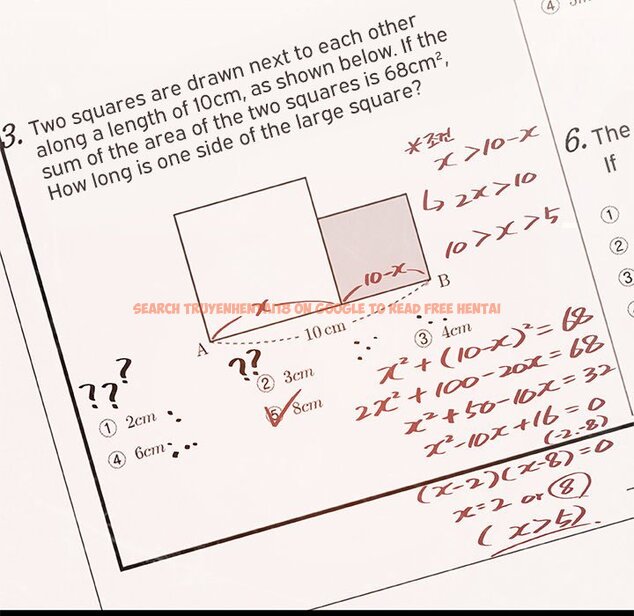 ④
3. Two squares are drawn next to each other
along a length of 10cm, as shown below. If the
sum of the area of the two squares is 68cm²,
How long is one side of the large square?
*조건
x > 10-x
↳ 2x > 10
10 > x > 5
6. The
If
①
②
③
x
10-x
A
B
10 cm
SEARCH TRUYENHENTAI18 ON GOOGLE TO READ FREE HENTAI
???
??
① 2cm
② 3cm
③ 4cm
④ 6cm
⑤ 8cm
x² + (10-x)² = 68
2x² + 100 - 20x = 68
x² + 50 - 10x = 32
x² - 10x + 16 = 0
(-2. -8)
(x-2)(x-8) = 0
x = 2 or 8
(x > 5).